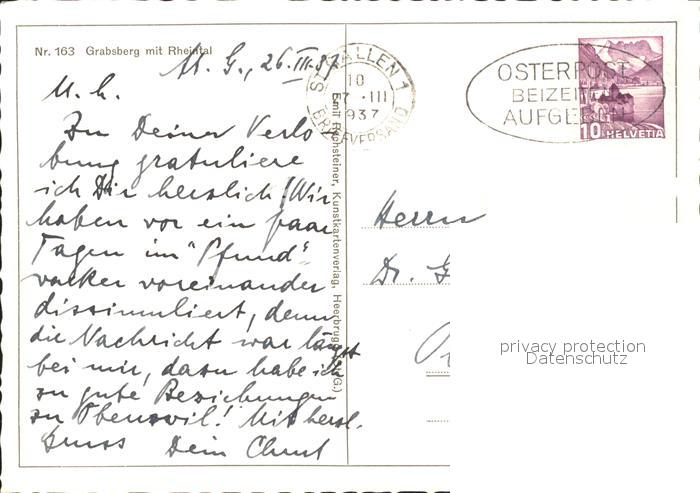 Nr. 163 Grabsberg mit Rheintal
St. G., 26. III. 37
M. h.
Zu Deiner Verlo
bung gratuliere
ich Dir herzlich! Wir
haben vor ein paar
Tagen im "Pfund"
wacker voreinander
dissimuliert, denn
die Nachricht war längst
bei mir, dazu habe ich
zu gute Beziehungen
zu Oberwil! Mit herzl.
Gruss Dein
ST. GALLEN 1
10
27. III
1937
BRIEFVERSAND
OSTERPOST
BEIZEITEN
AUFGEBEN
10 HELVETIA
Emil Hochsteiner, Kunstkartenverlag, Heerbrugg (St. G)
Herrn
Dr. G
privacy protection
Datenschutz